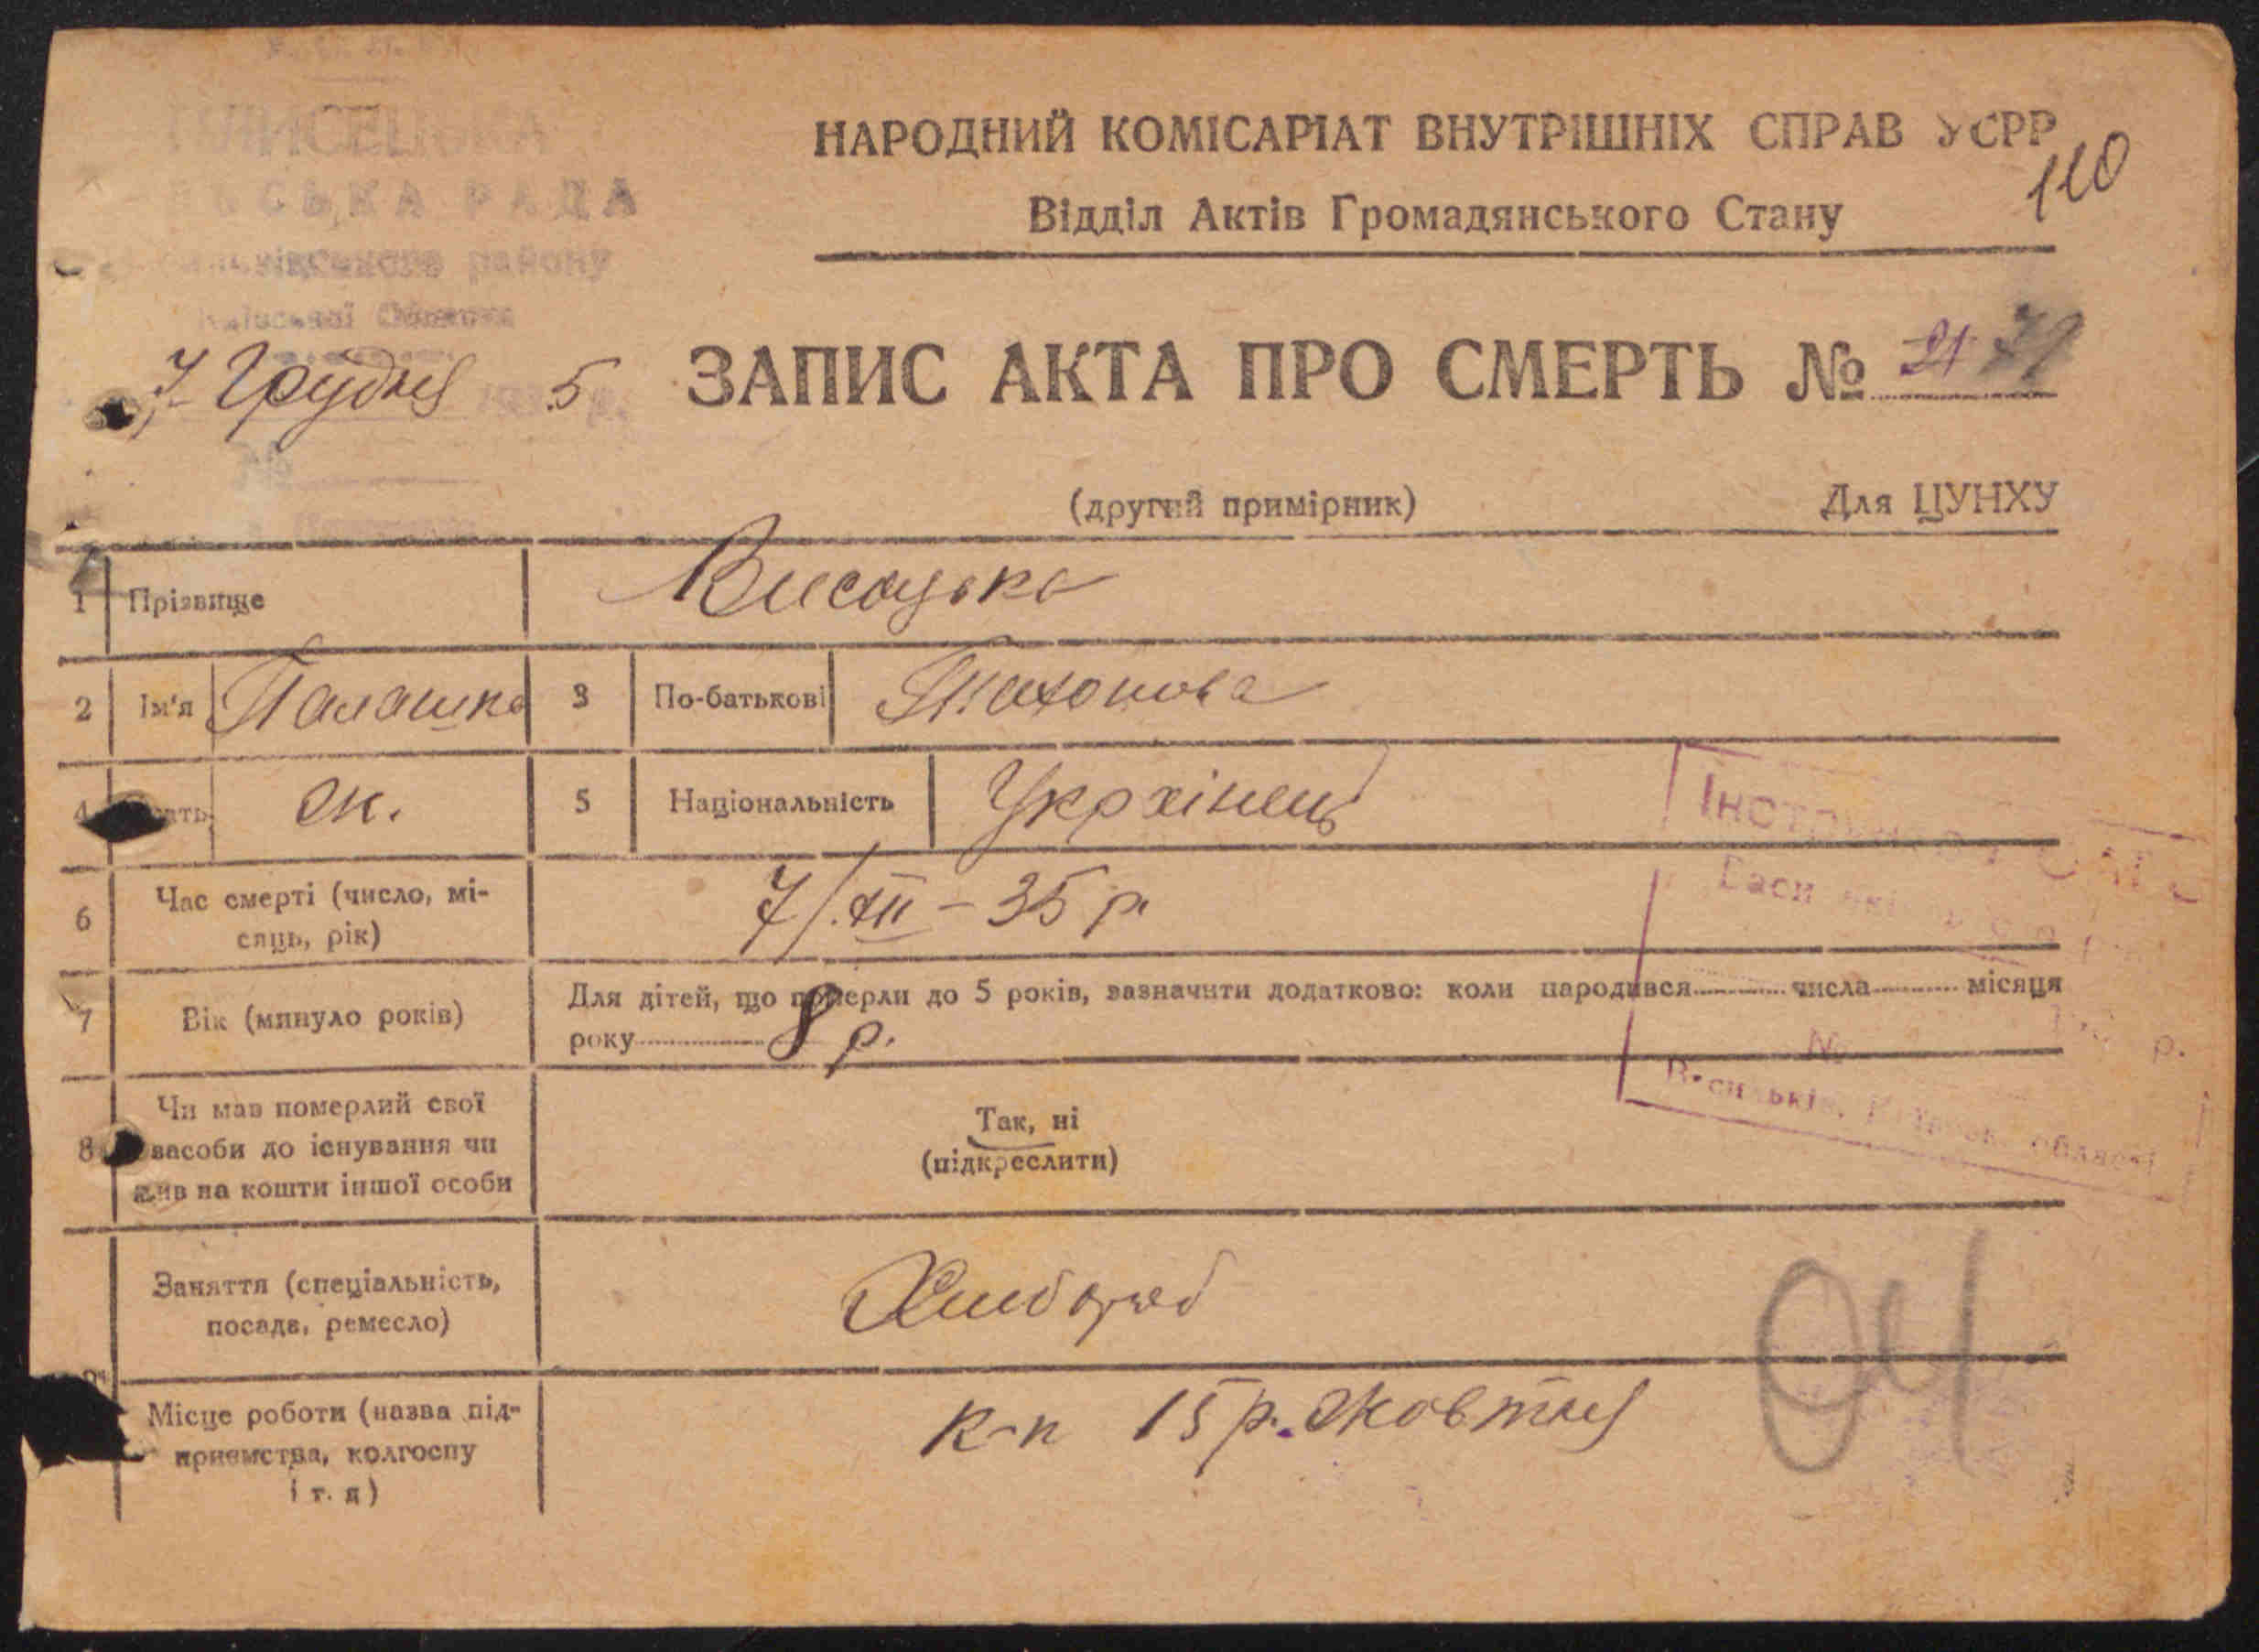 РАДА
району
7 Грудня 5
НАРОДНИЙ КОМІСАРІАТ ВНУТРІШНІХ СПРАВ УСРР
110
Відділ Актів Громадянського Стану
ЗАПИС АКТА ПРО СМЕРТЬ №
(другий примірник) Для ЦУНХУ
1 Прізвище Висоцька
2 Ім'я Палашка 3 По-батькові
4 ж. 5 Національність Українець
6 Час смерті (число, мі-
сяць, рік) 7/XII – 35 р.
7 Вік (минуло років) Для дітей, що померли до 5 років, зазначити додатково: коли народився числа місяця
року 8 р.
8 Чи мав померлий свої
засоби до існування чи
жив на кошти іншої особи
Так, ні
(підкреслити)
№ р.
Заняття (спеціальність,
посада, ремесло) Хлібороб
Місце роботи (назва під-
приємства, колгоспу
і т. д) к-п 15 р. Жовтня